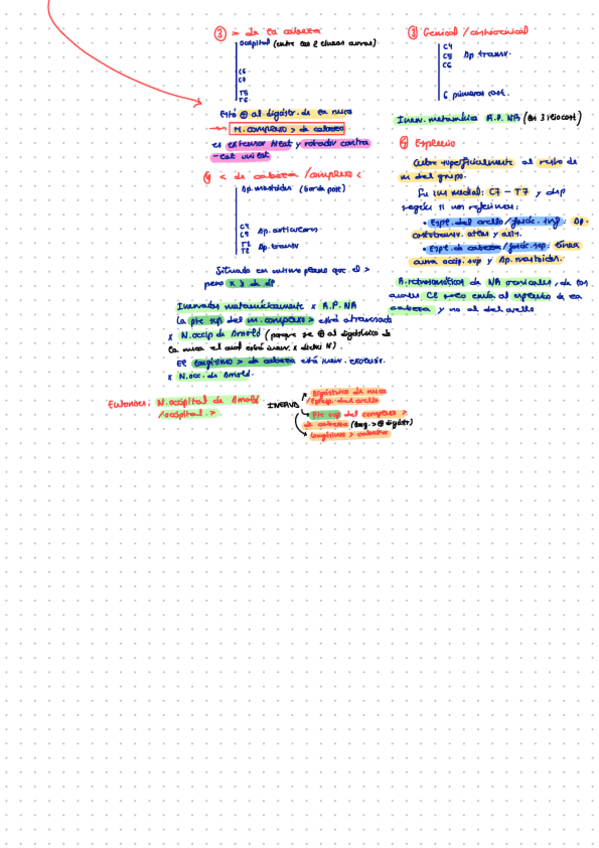 ③ > de la cabeza
occipital (entre las 2 líneas curvas)
C6
C7
T5
T6
Está ⊕ al digástr. de la nuca
M. complexo > de cabeza
es extensor bilat y rotador contra
-lat unilat
④ < de cabeza /complexo <
Ap. mastoides (borde post)
C4
C7 Ap. articulares
T1
T2 Ap. transv
Situado en mismo plano que el >
pero x
Inervados metaméricamente x R.P. NR
La pte sup del m. complexo > está atravesada
x N. occip de Arnold (porque se ⊕ al digástrico de
la nuca el cual está inerv. x dicho N).
El longísimo > de cabeza está inerv. exclusiv.
x N. occ. de Arnold.
Entonces: N. occipital de Arnold
/occipital >
INERVA
Digástrico de nuca
Pte sup del complexo >
de cabeza
longísimo > cabeza
⑧ Cervical /costocervical
C4
C5 Ap transv.
C6
6 primeras cost.
Inerv. metamérica R.P. NR (los 3 iliocost)
⑤ Esplenio
Cubre superficialmente al resto de
m del grupo.
En lín medial: C7 – T7 y dsp
según si nos referimos:
• Espl. del cuello /fascíc. inf: Ap.
costotransv. atlas y axis.
• Espl. de cabeza /fascíc. sup: línea
curva occip. sup y Ap. mastoides.
de NR cervicales, de los
cuales C2 solo envía al esplenio de la
cabeza y no al del cuello